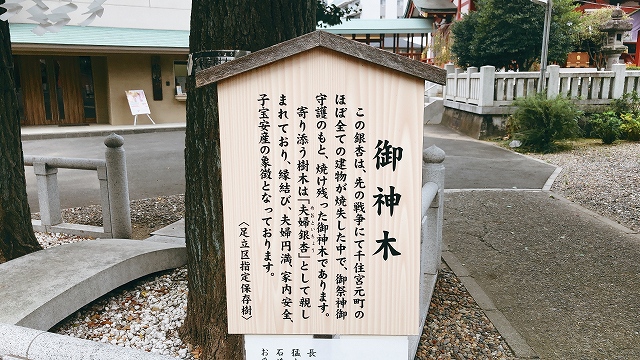 御神木
この銀杏は、先の戦争にて千住宮元町の
ほぼ全ての建物が焼失した中で、御祭神御
守護のもと、焼け残った御神木であります。
寄り添う樹木は「夫婦銀杏」として親し
まれており、縁結び、夫婦円満、家内安全、
子宝安産の象徴となっております。
〈足立区指定保存樹〉